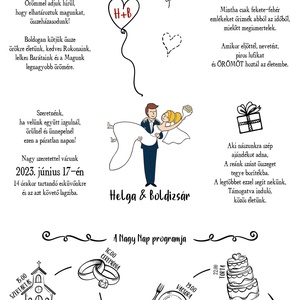 Örömmel adjuk hírül,
hogy elhatároztuk magunkat,
összeházasodunk!
Boldogan kötjük össze
örökre életünk, kedves Rokonaink,
lelkes Barátaink és a Magunk
legnagyobb örömére.
H+B
Mintha csak fekete-fehér
emlékeket őriznék abból az időből,
mielőtt megismertelek.
Amikor eljöttél, nevetést,
piros lufikat
és ÖRÖMÖT hoztál az életembe.
Szeretnénk,
ha velünk együtt izgulnál,
örülnél és ünnepelnél
ezen a páratlan napon!
Nagy szeretettel várunk
2023. június 17-én
14 órakor tartandó esküvőnkre
és az azt követő lagziba.
Helga & Boldizsár
Aki nászunkra szép
ajándékot adna,
A reánk szánt összeget
tegye borítékba.
A legtöbbet ezzel segít nekünk,
Támogatva induló,
közös életünk.
A Nagy Nap programja
15:00
16:00
CEREMÓNIA
VACSORA
TORTA